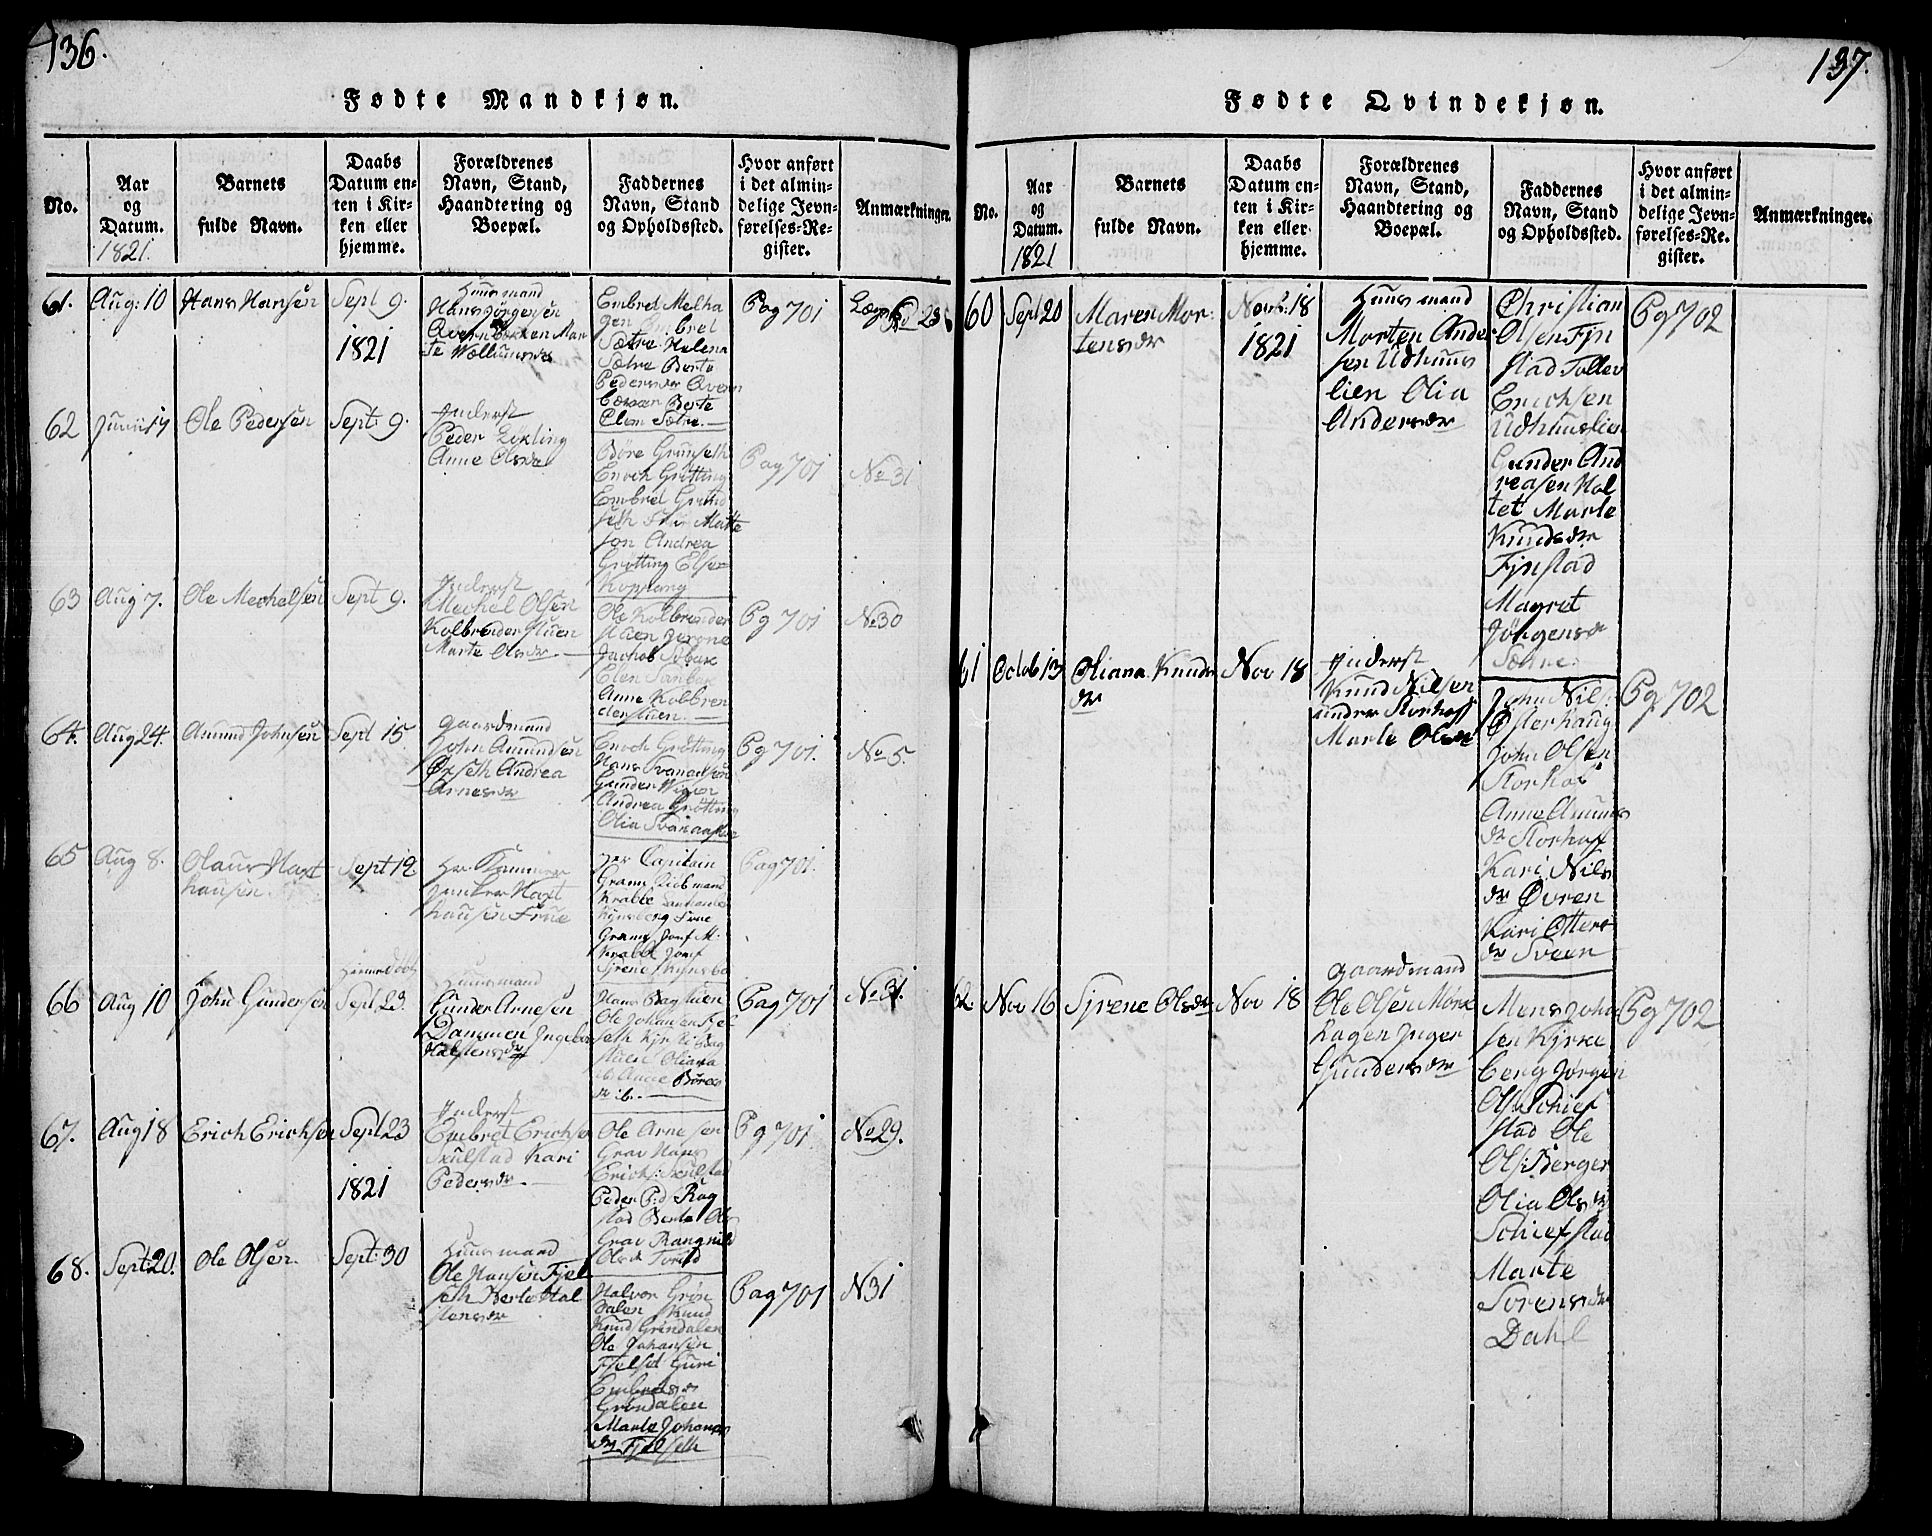 136.
Fødte Mandkjøn.
No.
Aar
og
Datum.
1821.
Barnets
fulde Navn.
Daabs
Datum en-
ten i Kir-
ken eller
hjemme.
Forældrenes
Navn, Stand,
Haandtering og
Boepæl.
Faddernes
Navn, Stand
og Opholdssted.
Hvor anført
i det almin-
delige Jevn-
førelses-Re-
gister.
Anmærkninger.
61.
Aug: 10
Hans Hansen
Sept 9.
1821
Huusmand
Hans Jørgensen
Embret Melha
gen Embret
Sætre Helena
Sætre Berte
Pedersdr
Berte
Elem Sætre.
Pag 701
62
Junii 17
Ole Pedersen
Sept: 9.
Inderst
Peder Løkling
Anne Olsdr
Børe Grunseth
Enoch Grøtting
Embret Grund
seth
son Andrea
Grøtting Elsen
Koppang
Pag 701
No 31
63
Aug 7.
Ole Mechelsen
Sept 9.
Inderst
Mechel Olsen
Kolbrenderstuen
Marte Olsdr.
Ole Kolbrender
stuen
Jachob
Elen
Anne Kolbren
derstuen.
Pg 701
No 30
64.
Aug 24.
Amund Johnsen
Sept 15.
Gaardmand
John Amundsen
Ørseth Andrea
Arnesdr
Enoch Grøtting
Hans
Gunder
Andrea Grøtting
Olia
Pg 701.
No 5.
65
Aug 8.
Olaus Haxt
hausen.
Sept 12
Hr. Kammer
junker Haxt
hausen Frue
Hr Capitain
Gram
Krabbe
Frue
Gram Jomf M.
Krabbe Jomf
Pag 701.
66
Aug 10
John Gundersen
Hjemmedøbt
Sept 23.
Huusmand
Gunder Arnesen
Dammen Ingebor
Halstensdr
Hans Bagstuen
Ole Johansen Fjel
seth
stuen Oliana
ib Anne Børes
dr ib.
Pag 701
No 31.
67.
Aug 18
Erich Erichsen
Sept 23
1821
Inderst
Embret Erichse
Skulstad Kari
Pedersdr.
Ole Arnesen
Grav Hans
Erichs: Skulstad
Peder P:d Rog
stad Berte Ols
Grav Rangnild
Olsdr
Pg 701
No 29.
68.
Sept: 20.
Ole Olsen.
Sept: 30
Huusmand
Ole Hansen Fjel
seth Berte Hal
stensdr
Halvor Grøn
dalen Knud
Knud Grindalen
Ole Johansen
Fjelset Guri
Embretsdr
Grøndalen
Marte Johans
dr Fjelseth
Pag 701
N 31
137.
Fødte Qvindekjøn.
No.
Aar
og
Datum.
1821
Barnets
fulde Navn.
Daabs
Datum en-
ten i Kir-
ken eller
hjemme.
Forældrenes
Navn, Stand,
Haandtering og
Boepæl.
Faddernes
Navn, Stand
og Opholdssted.
Hvor anført
i det almin-
delige Jevn-
førelses-Re-
gister.
Anmærkninger.
60
Sept 20
Maren Mor:
tensdr
Novb. 18
1821
Huusmand
Morten Ander
sen Udhuus
lien Olia
Andersdr
Christian
Olsen Fyn
stad Tollev
Erichsen
Udhuuslien
Gunder And
reasen Hol
tet Marte
Knudsdr
Fynstad
Magret
Jørgensdr
Sætre.
Pg 702
61
Octob 13
Oliana Knuds
dr
Nov 18
Inderst
Knud Nilsen
under Storhoff
Marte Olsdr
John Nils:
Østerhaug
John Olsen
Storhof
Anne Amunds
dr Storhoff
Kari Nils
dr Øvren
Kari Otters
dr Sveen
Pg 702
62.
Nov 16
Syrene Olsdr
Nov 18
Gaardmand
Ole Olsen Mørk
hagen Inger
Gundersdr
Mens John
sen Kjrke
berg Jørgen
Ols Schief
stad Ole
Ols: Berger
Olia Olsdr
Schiefstad
Marte
Sorensdr
Dahl
Pg 702